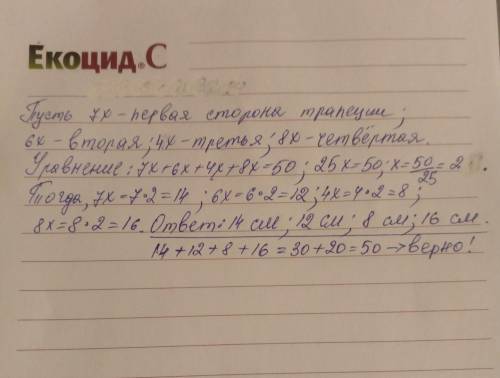 Екоцид.С
Пусть 7х-первая сторона трапеции;
6х-вторая; 4х-третья; 8х-четвёртая.
Уравнение: 7х+6х+4х+8х=50; 25х=50; х=50/25=2
Тогда, 7х=7·2=14; 6х=6·2=12; 4х=4·2=8;
8х=8·2=16. Ответ: 14 см; 12 см; 8 см; 16 см.
14+12+8+16=30+20=50→верно!